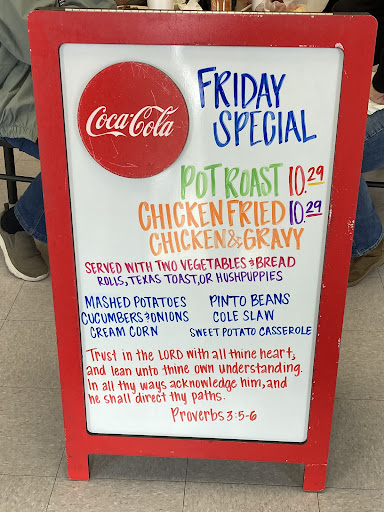 Coca-Cola
FRIDAY
SPECIAL
POT ROAST 10.29
CHICKEN FRIED 10.29
CHICKEN & GRAVY
SERVED WITH TWO VEGETABLES & BREAD
ROLLS, TEXAS TOAST, OR HUSHPUPPIES
MASHED POTATOES PINTO BEANS
CUCUMBERS & ONIONS COLE SLAW
CREAM CORN SWEET POTATO CASSEROLE
Trust in the LORD with all thine heart,
and lean unto thine own understanding.
In all thy ways acknowledge him, and
he shall direct thy paths.
Proverbs 3:5-6